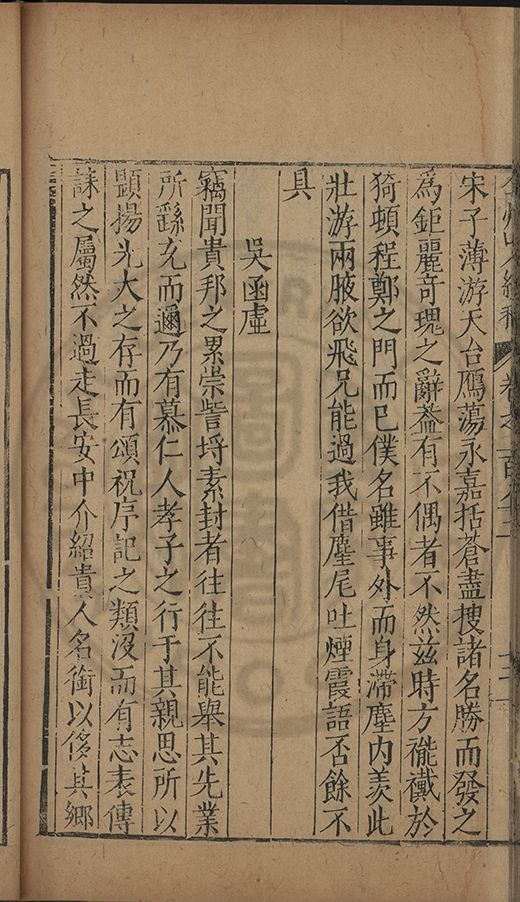 宋子薄游天台鴈蕩永嘉括蒼盡搜諸名勝而發之
為鉅麗奇瑰之辭葢有不偶者不然兹時方褦襶於
猗頓程鄭之門而已僕名雖事外而身滯塵內羨此
壯游兩腋欲飛兄能過我借麈尾吐煙霞語否餘不
具
吳函虛
竊聞貴邦之累崇訾埒素封者往往不能舉其先業
所繇充而邇乃有慕仁人孝子之行于其親思所以
顯揚光大之存而有頌祝序記之類沒而有志表傳
誄之屬然不過走長安中介紹貴人名銜以侈其鄉